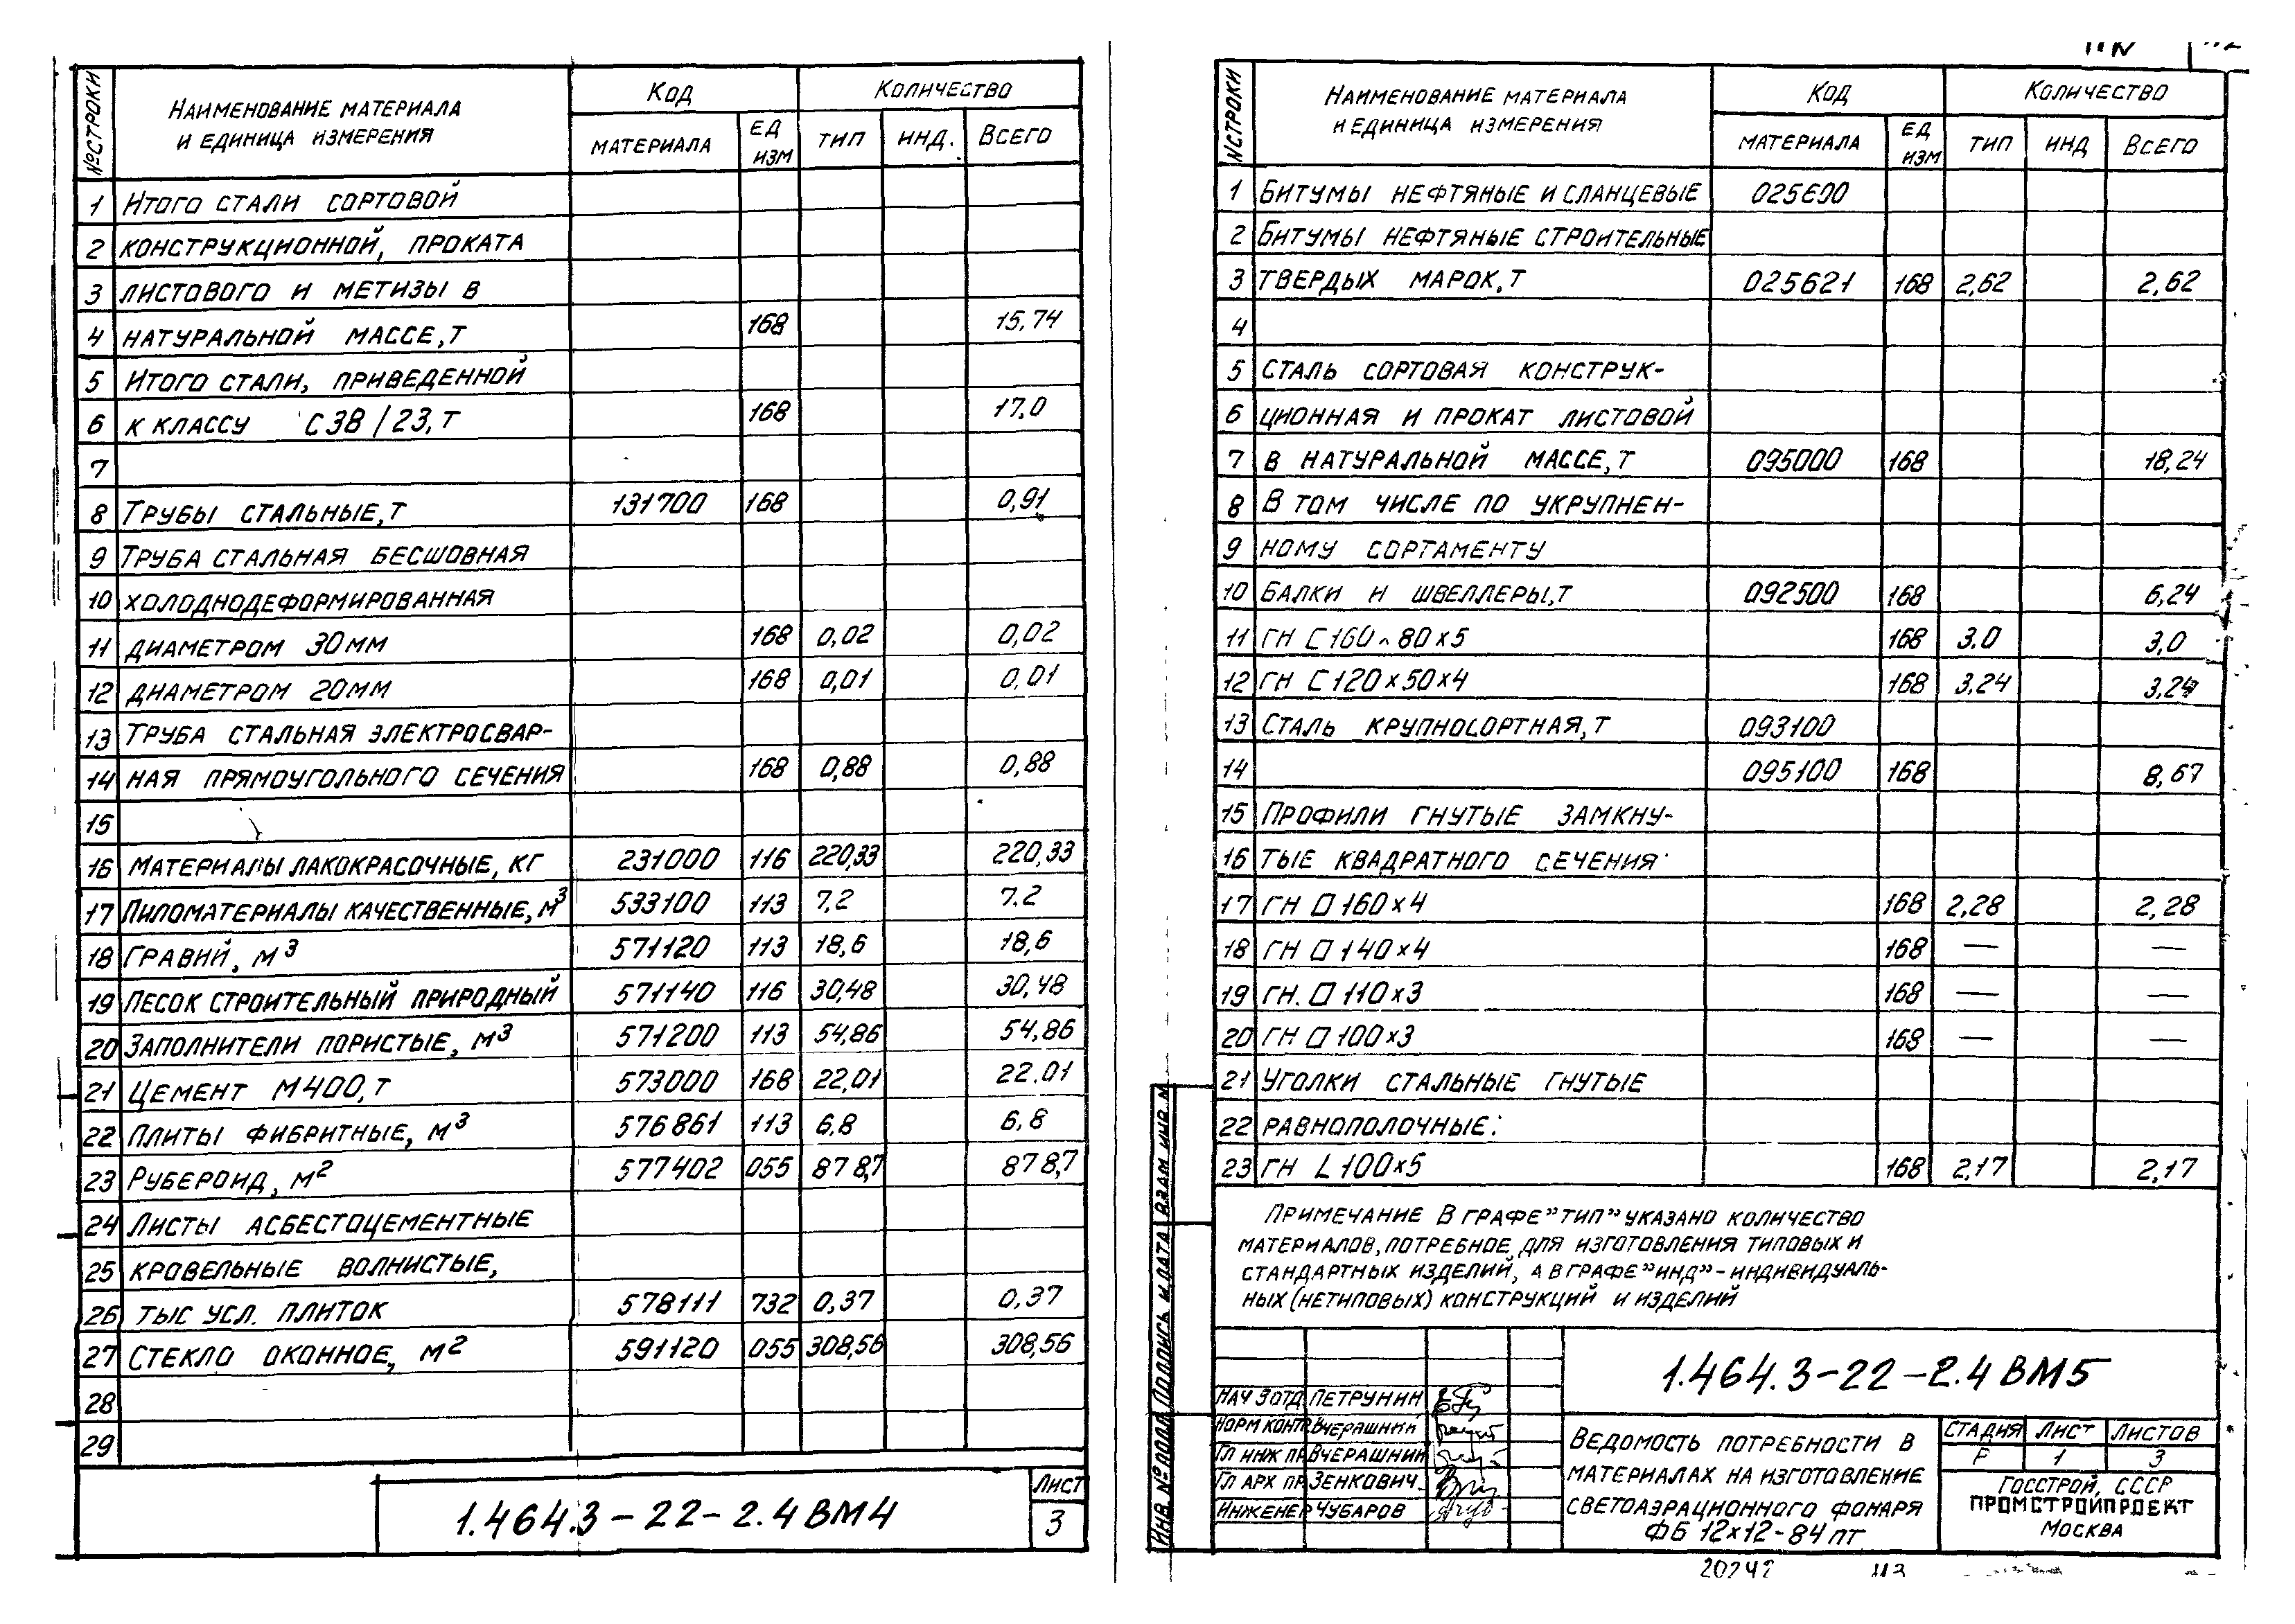 № строки Наименование материала и единица измерения Код Количество
материала ед изм тип инд. Всего
1 Итого стали сортовой
2 конструкционной, проката
3 листового и метизы в
4 натуральной массе, т 168 15,74
5 Итого стали, приведенной
6 к классу С38/23, т 168 17,0
7
8 Трубы стальные, т 131700 168 0,91
9 Труба стальная бесшовная
10 холоднодеформированная
11 диаметром 30мм 168 0,02 0,02
12 диаметром 20мм 168 0,01 0,01
13 Труба стальная электросвар-
14 ная прямоугольного сечения 168 0,88 0,88
15
16 Материалы лакокрасочные, кг 231000 116 220,33 220,33
17 Пиломатериалы качественные, м³ 533100 113 7,2 7.2
18 Гравий, м³ 571120 113 18,6 18,6
19 Песок строительный природный 571140 116 30,48 30,48
20 Заполнители пористые, м³ 571200 113 54,86 54,86
21 Цемент М400, т 573000 168 22,01 22.01
22 Плиты фибритные, м³ 576861 113 6,8 6,8
23 Рубероид, м² 577402 055 878,7 878,7
24 Листы асбестоцементные
25 кровельные волнистые,
26 тыс усл. плиток 578111 732 0,37 0,37
27 Стекло оконное, м² 591120 055 308,56 308,56
28
29
1.464.3-22-2.4 ВМ4
Лист
3
N строки Наименование материала и единица измерения Код Количество
материала ед изм тип инд Всего
1 Битумы нефтяные и сланцевые 025600
2 Битумы нефтяные строительные
3 твердых марок, т 025621 168 2,62 2,62
4
5 Сталь сортовая конструк-
6 ционная и прокат листовой
7 в натуральной массе, т 095000 168 18,24
8 В том числе по укрупнен-
9 ному сортаменту
10 Балки и швеллеры, т 092500 168 6,24
11 гн С160х80х5 168 3,0 3,0
12 гн С120х50х4 168 3,24 3,24
13 Сталь крупносортная, т 093100
14 095100 168 8,67
15 Профили гнутые замкну-
16 тые квадратного сечения:
17 гн □ 160х4 168 2,28 2,28
18 гн □ 140х4 168 — —
19 гн. □ 110х3 168 — —
20 гн □ 100х3 168 — —
21 Уголки стальные гнутые
22 равнополочные:
23 гн L 100х5 168 2,17 2,17
Примечание В графе "тип" указано количество
материалов, потребное для изготовления типовых и
стандартных изделий, а в графе "инд" - индивидуаль-
ных (нетиповых) конструкций и изделий
1.464.3-22-2.4 ВМ5
Нач 3 отд Петрунин
Норм контр Вчерашний
Гл инж пр Вчерашний
Гл арх пр Зенкович
Инженер Чубаров
Ведомость потребности в
материалах на изготовление
светоаэрационного фонаря
ФБ 12х12-84 пт
Стадия Лист Листов
Р 1 3
Госстрой, СССР
Промстройпроект
Москва
Инв № подл Подпись и дата Взам инв N
20242 113